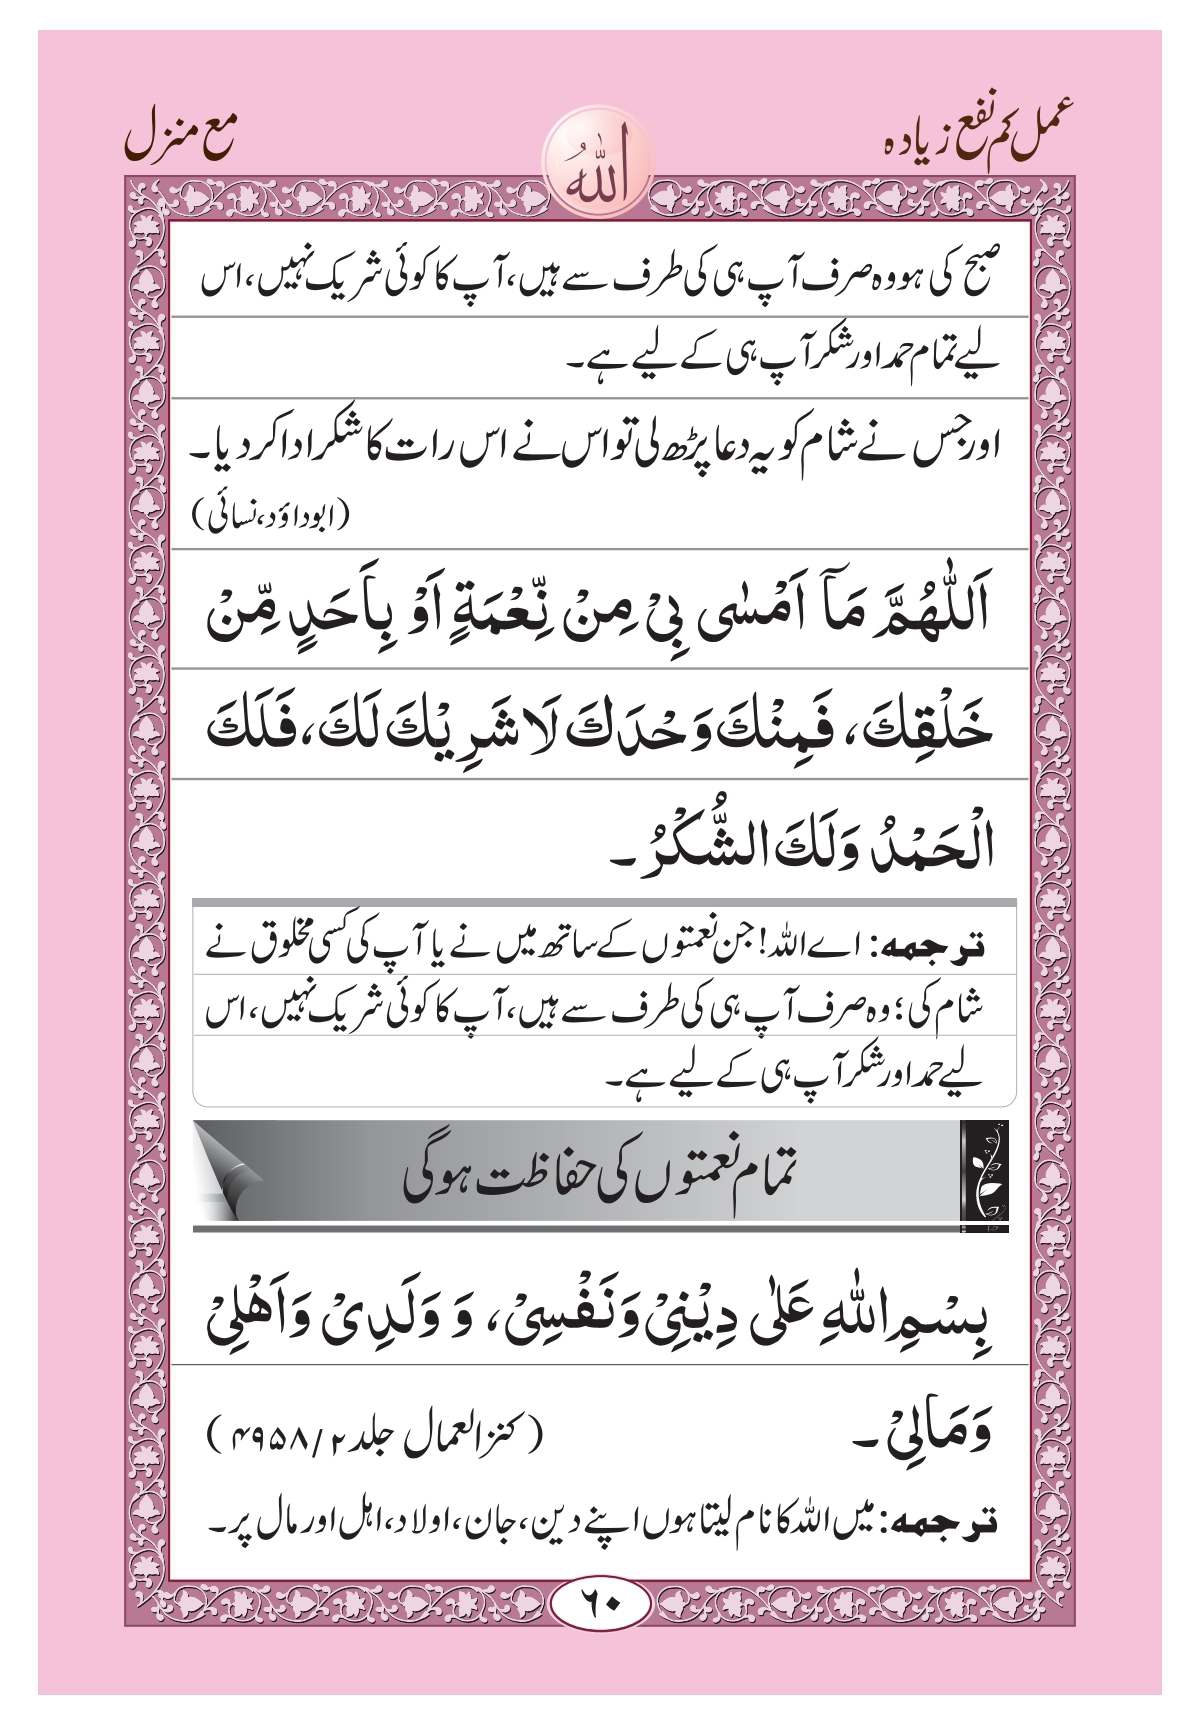 عمل کم نفع زیادہ
مع منزل
اللّٰہُ
صبح کی ہو وہ صرف آپ ہی کی طرف سے ہیں، آپ کا کوئی شریک نہیں، اس
لیے تمام حمد اور شکر آپ ہی کے لیے ہے۔
اور جس نے شام کو یہ دعا پڑھ لی تو اس نے اس رات کا شکر ادا کر دیا۔
(ابوداؤد، نسائی)
اَللّٰهُمَّ مَآ اَمْسٰى بِیْ مِنْ نِّعْمَةٍ اَوْ بِاَحَدٍ مِّنْ
خَلْقِكَ، فَمِنْكَ وَحْدَكَ لَا شَرِيْكَ لَكَ، فَلَكَ
الْحَمْدُ وَلَكَ الشُّكْرُ ۔
ترجمہ: اے اللہ! جن نعمتوں کے ساتھ میں نے یا آپ کی کسی مخلوق نے
شام کی؛ وہ صرف آپ ہی کی طرف سے ہیں، آپ کا کوئی شریک نہیں، اس
لیے حمد اور شکر آپ ہی کے لیے ہے۔
تمام نعمتوں کی حفاظت ہوگی
بِسْمِ اللّٰهِ عَلٰى دِيْنِیْ وَنَفْسِیْ، وَ وَلَدِیْ وَاَهْلِیْ
وَمَالِیْ ۔
(کنز العمال جلد ۲/ ۴۹۵۸)
ترجمہ: میں اللہ کا نام لیتا ہوں اپنے دین، جان، اولاد، اہل اور مال پر۔
٦٠